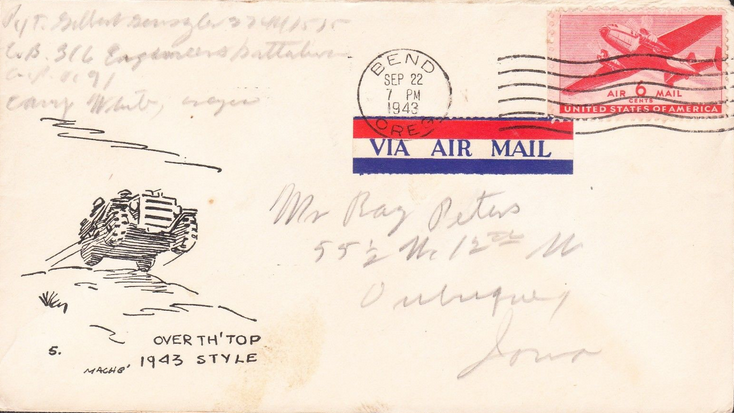 Pvt. Gilbert
Co. B. 316 Engineers Battalion
Camp White, Oregon
BEND
SEP 22
7 PM
1943
OREG
AIR 6 MAIL
CENTS
UNITED STATES OF AMERICA
VIA AIR MAIL
Mr Ray Peters
55½ W. 12th
Dubuque
Iowa
OVER TH' TOP
1943 STYLE
5.